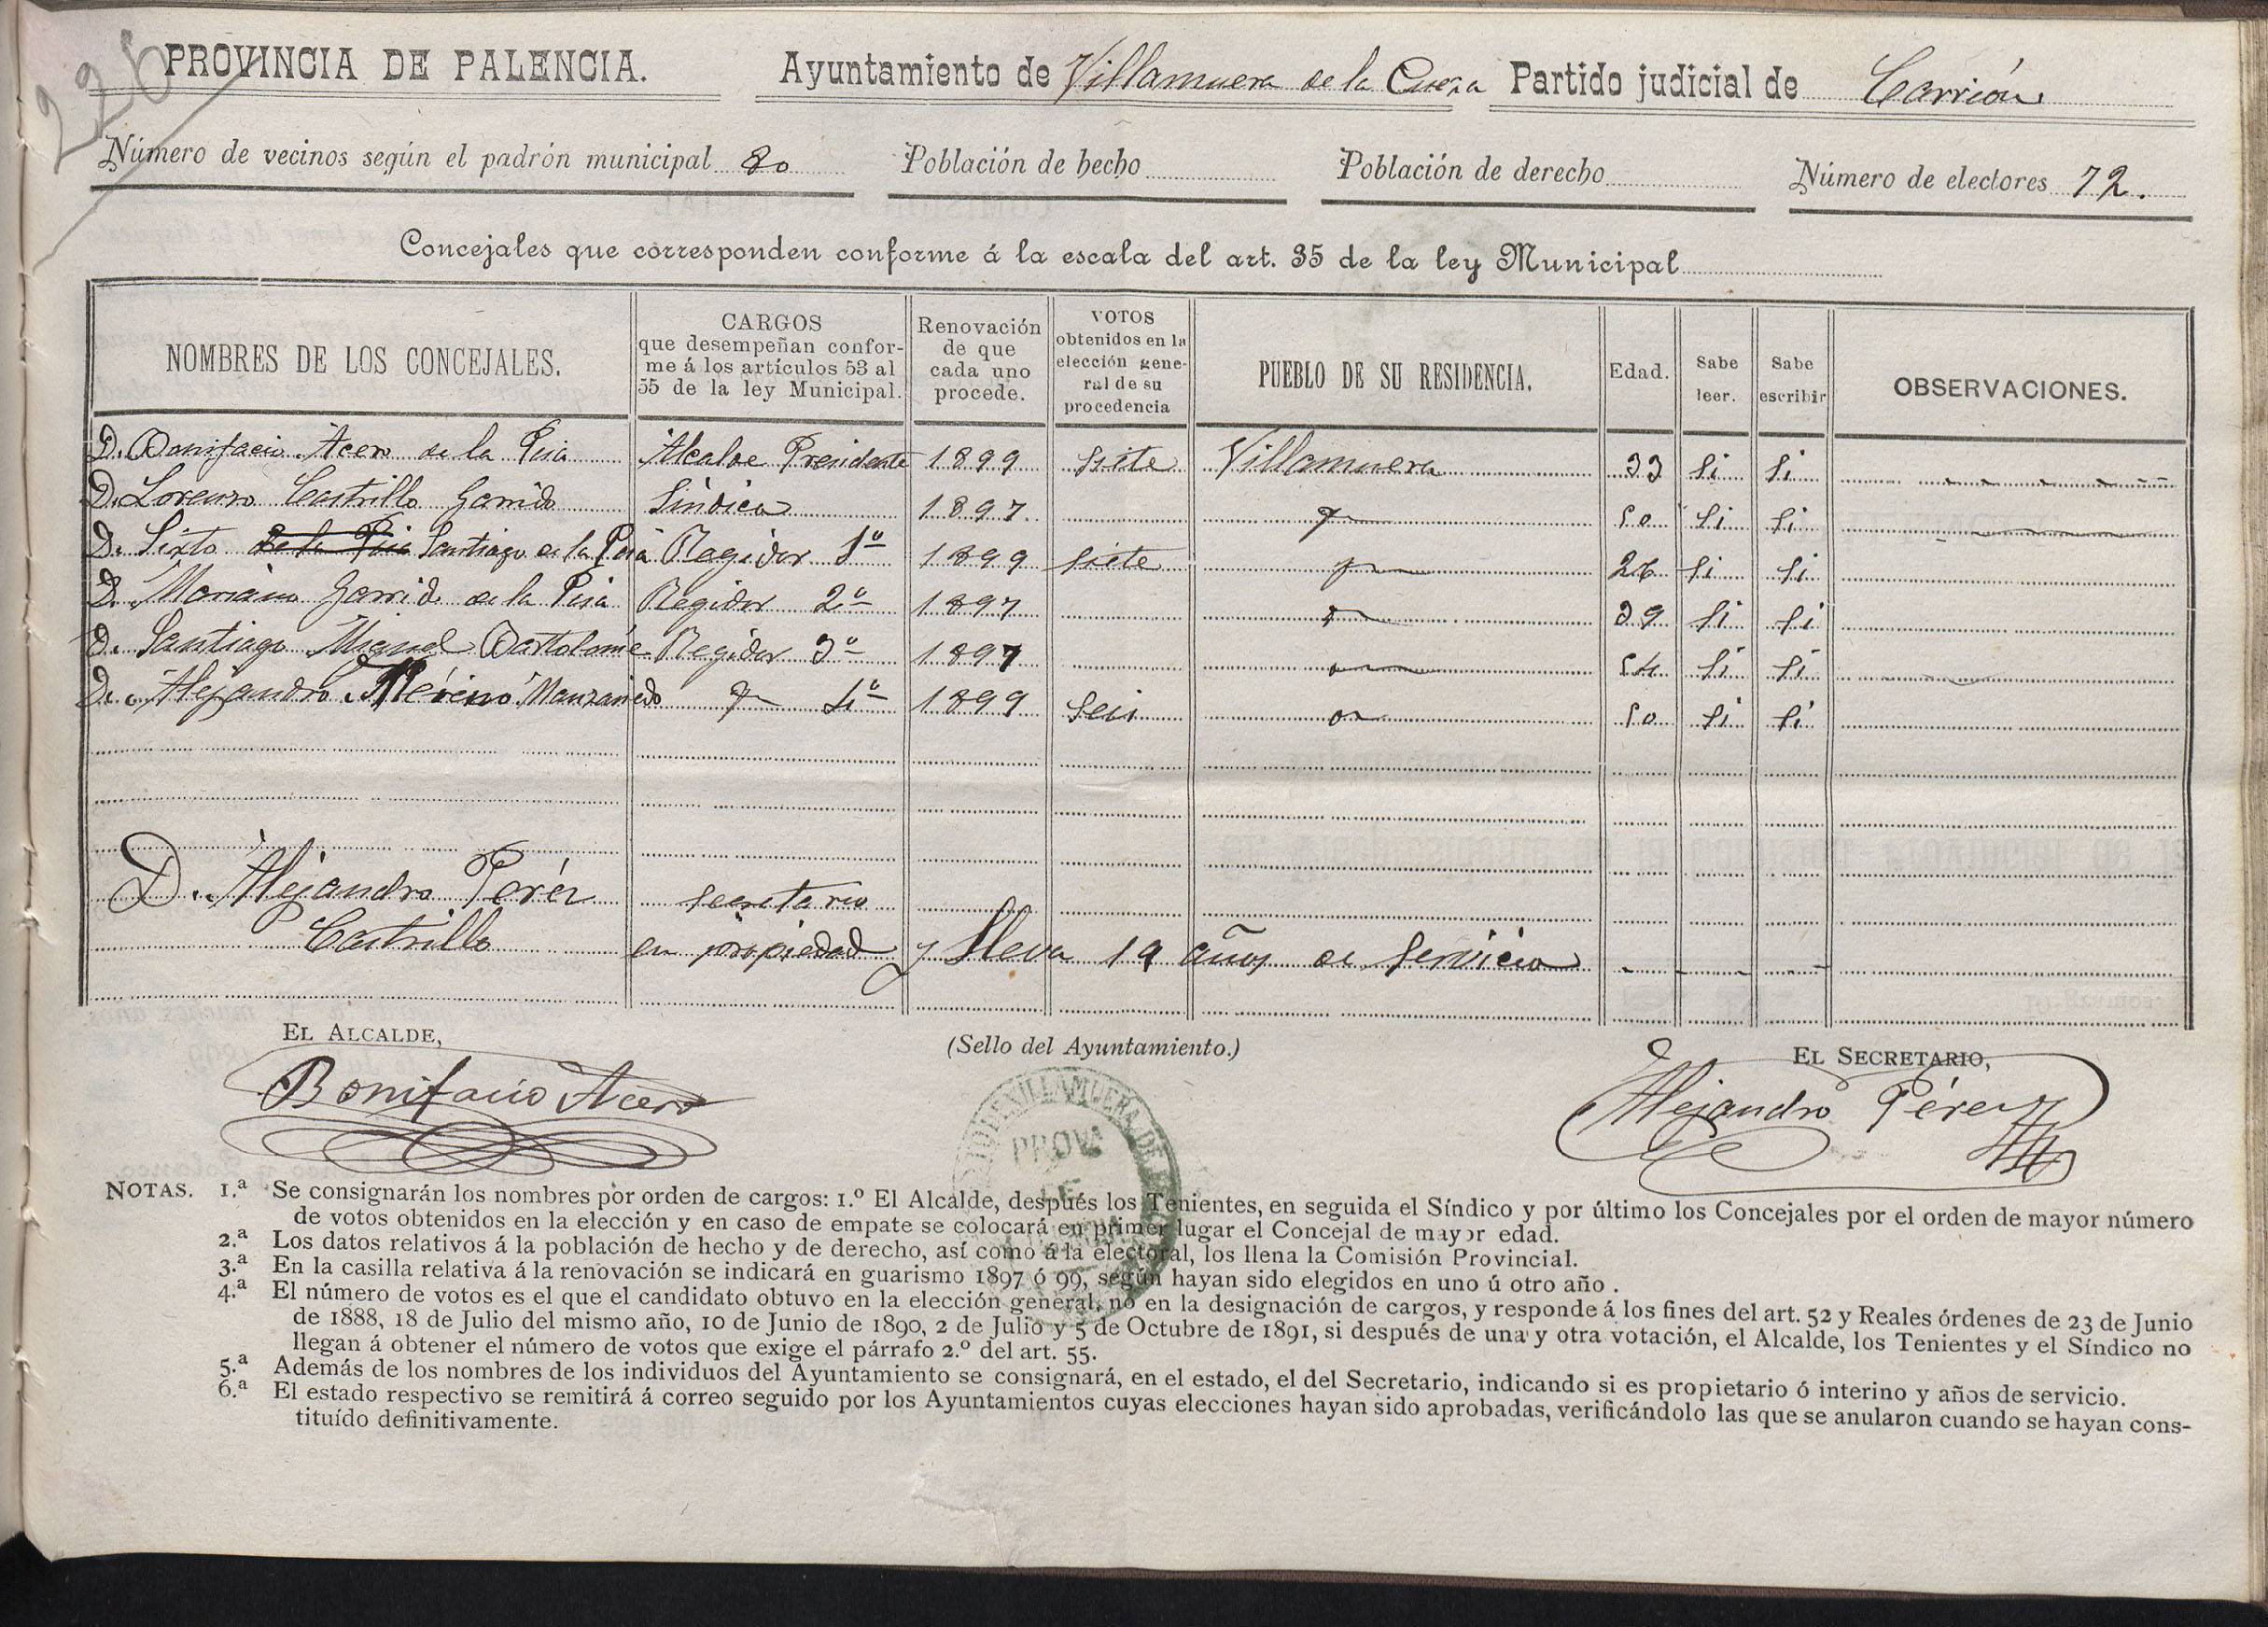 226
PROVINCIA DE PALENCIA. Ayuntamiento de Villamuera de la Cueza Partido judicial de Carrión
Número de vecinos según el padrón municipal 80 Población de hecho Población de derecho Número de electores 72.
Concejales que corresponden conforme á la escala del art. 35 de la ley Municipal
NOMBRES DE LOS CONCEJALES.
CARGOS
que desempeñan confor-
me á los artículos 53 al
55 de la ley Municipal.
Renovación
de que
cada uno
procede.
VOTOS
obtenidos en la
elección gene-
ral de su
procedencia
PUEBLO DE SU RESIDENCIA.
Edad.
Sabe
leer.
Sabe
escribir
OBSERVACIONES.
D. Bonifacio Acero de la Pisa Alcalde Presidente 1899 siete Villamuera 33 Si Si
D. Lorenzo Castrillo Garrido Síndico 1897 50 Si Si
D. Sixto de la Pisa Santiago de la Pisa Regidor 1º 1899 siete 26 Si Si
D. Mariano Garrido de la Pisa Regidor 2º 1897 39 Si Si
D. Santiago Miguel Bartolomé Regidor 3º 1897 54 Si Si
D. Alejandro Merino Manzanedo 4º 1899 Seis 50 Si Si
D. Alejandro Peréz secretario
Castrillo en propiedad y lleva 19 años de servicio
EL ALCALDE,
(Sello del Ayuntamiento.)
EL SECRETARIO,
Bonifacio Acero
Alejandro Pérez
VILLAMUERA DE
PROVª
NOTAS. 1.ª Se consignarán los nombres por orden de cargos: 1.º El Alcalde, después los Tenientes, en seguida el Síndico y por último los Concejales por el orden de mayor número
de votos obtenidos en la elección y en caso de empate se colocará en primer lugar el Concejal de mayor edad.
2.ª Los datos relativos á la población de hecho y de derecho, así como á la electoral, los llena la Comisión Provincial.
3.ª En la casilla relativa á la renovación se indicará en guarismo 1897 ó 99, según hayan sido elegidos en uno ú otro año .
4.ª El número de votos es el que el candidato obtuvo en la elección general, no en la designación de cargos, y responde á los fines del art. 52 y Reales órdenes de 23 de Junio
de 1888, 18 de Julio del mismo año, 10 de Junio de 1890, 2 de Julio y 5 de Octubre de 1891, si después de una y otra votación, el Alcalde, los Tenientes y el Síndico no
llegan á obtener el número de votos que exige el párrafo 2.º del art. 55.
5.ª Además de los nombres de los individuos del Ayuntamiento se consignará, en el estado, el del Secretario, indicando si es propietario ó interino y años de servicio.
6.ª El estado respectivo se remitirá á correo seguido por los Ayuntamientos cuyas elecciones hayan sido aprobadas, verificándolo las que se anularon cuando se hayan cons-
tituído definitivamente.